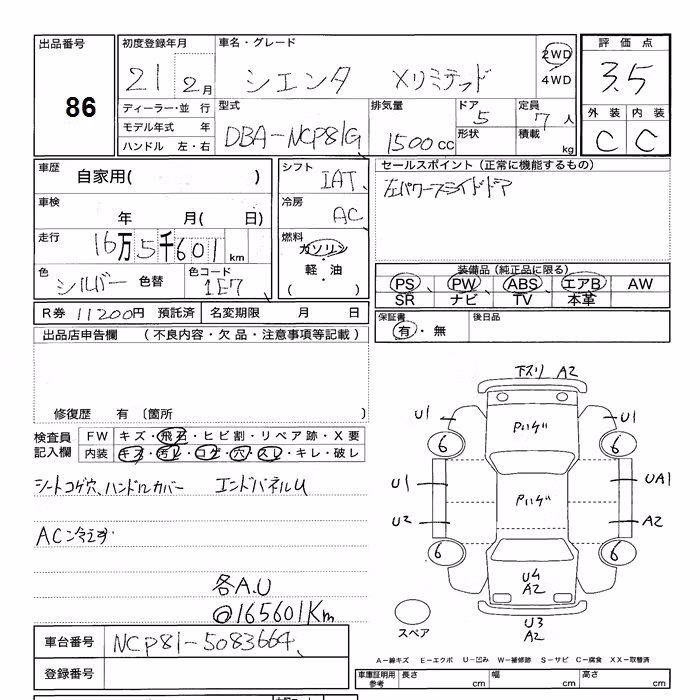 出品番号
86
初度登録年月
21 2月
車名・グレード
シエンタ Xリミテッド
2WD
4WD
評価点
3.5
外装 内装
C C
ディーラー・並行
モデル年式 年
ハンドル 左・右
型式
DBA-NCP81G
排気量
1500cc
ドア
5
形状
定員
7人
積載
kg
車歴
自家用( )
シフト
IAT
セールスポイント(正常に機能するもの)
左パワースライドドア
車検
年 月( 日)
冷房
AC
走行
16万5千601km
燃料
ガソリン
・
軽・油
( )
色
シルバー 色替
色コード
1E7
装備品(純正品に限る)
PS PW ABS エアB AW
SR ナビ TV 本革
R券 11200円 預託済
名変期限 月 日
保証書
有・無
後日品
出品店申告欄 (不良内容・欠品・注意事項等記載)
修復歴 有〔箇所 〕
検査員
記入欄
FW キズ・飛石・ヒビ割・リペア跡・X要
内装 キズ・汚レ・コゲ・穴・スレ・キレ・破レ
シートコゲ穴、ハンドルカバー エンドパネルU
AC冷えず
各A.U
@165601Km
車台番号 NCP81-5083664
登録番号
下スリ A2
U1
U1
6
6
Pいげ
U1
UA1
Pいげ
U2
A2
6
6
U4
A2
U3
A2
スペア
A-線キズ E-エクボ U-凹み W-補修跡 S-サビ C-腐食 XX-取替済
車庫証明用
参考
長さ cm
幅 cm
高さ cm